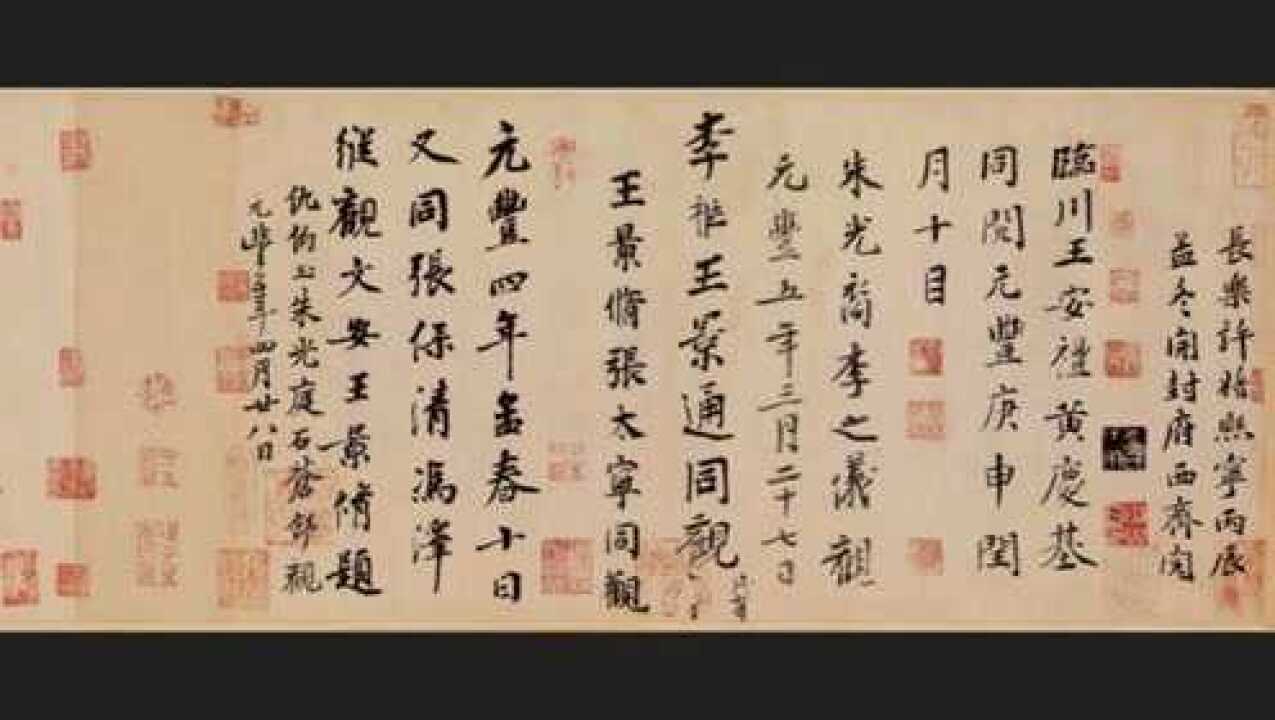 長樂許將熙寧丙辰
孟冬開封府西齋閱
臨川王安禮黃慶基
同閱元豐庚申閏
月十日
朱光裔李之儀觀
元豐五年三月二十七日
李 王景通同觀
王景脩張太寧同觀
元豐四年孟春十日
又同張保清馮澤
縱觀文安王景脩題
仇伯玉朱光庭石蒼舒觀
元豐五年四月廿八日